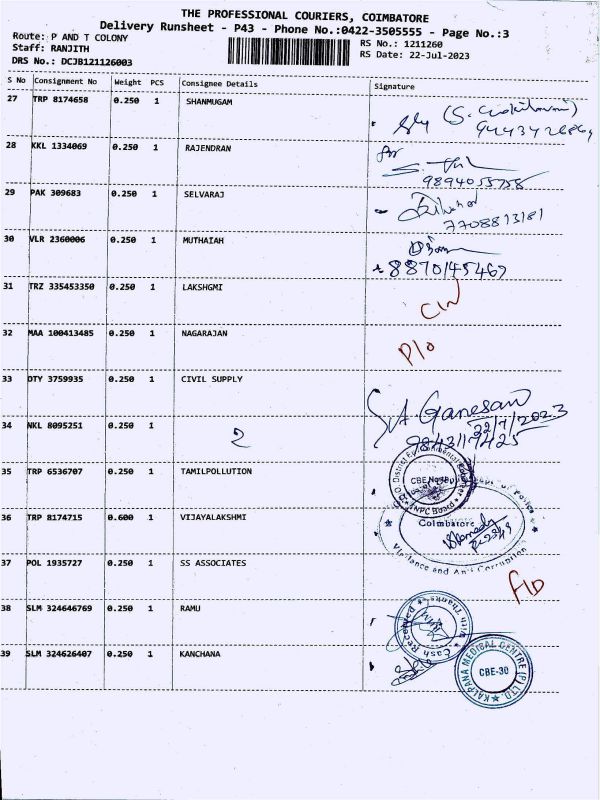 THE PROFESSIONAL COURIERS, COIMBATORE
Delivery Runsheet - P43 - Phone No.:0422-3505555 - Page No.:3
Route: P AND T COLONY
Staff: RANJITH
DRS No.: DCJB121126003
RS No.: 1211260
RS Date: 22-Jul-2023
S No Consignment No Weight PCS Consignee Details Signature
27 TRP 8174658 0.250 1 SHANMUGAM
28 KKL 1334069 0.250 1 RAJENDRAN
9894055758
29 PAK 309683 0.250 1 SELVARAJ
7708813181
30 VLR 2360006 0.250 1 MUTHAIAH
8870145467
31 TRZ 335453350 0.250 1 LAKSHGMI
32 MAA 100413485 0.250 1 NAGARAJAN
P/o
33 OTY 3759935 0.250 1 CIVIL SUPPLY
S.A. Ganesan
22/7/2023
34 NKL 8095251 0.250 1 2
35 TRP 6536707 0.250 1 TAMILPOLLUTION
District Environmental
TNPC Board
36 TRP 8174715 0.600 1 VIJAYALAKSHMI
Coimbatore
Vigilance and Anti Corruption
37 POL 1935727 0.250 1 SS ASSOCIATES
38 SLM 324646769 0.250 1 RAMU
Cash Received With Thanks
39 SLM 324626407 0.250 1 KANCHANA
KALPANA MEDICAL CENTRE (P) LTD.
CBE-30